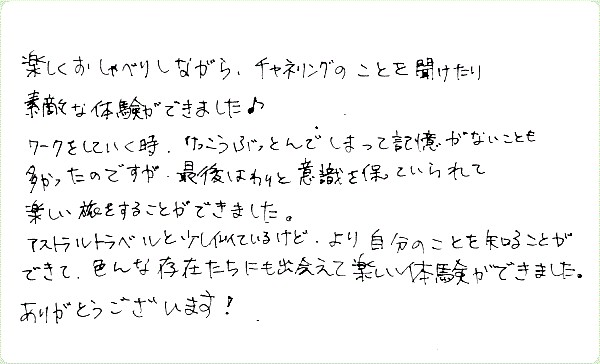 楽しくおしゃべりしながら、チャネリングのことを聞けたり
素敵な体験ができました♪
ワークをしていく時、けっこうぶっとんでしまって記憶がないことも
多かったのですが、最後はわりと意識を保っていられて
楽しい旅をすることができました。
アストラルトラベルと少し似ているけど、より自分のことを知ることが
できて、色んな存在たちにも出会えて楽しい体験ができました。
ありがとうございます!